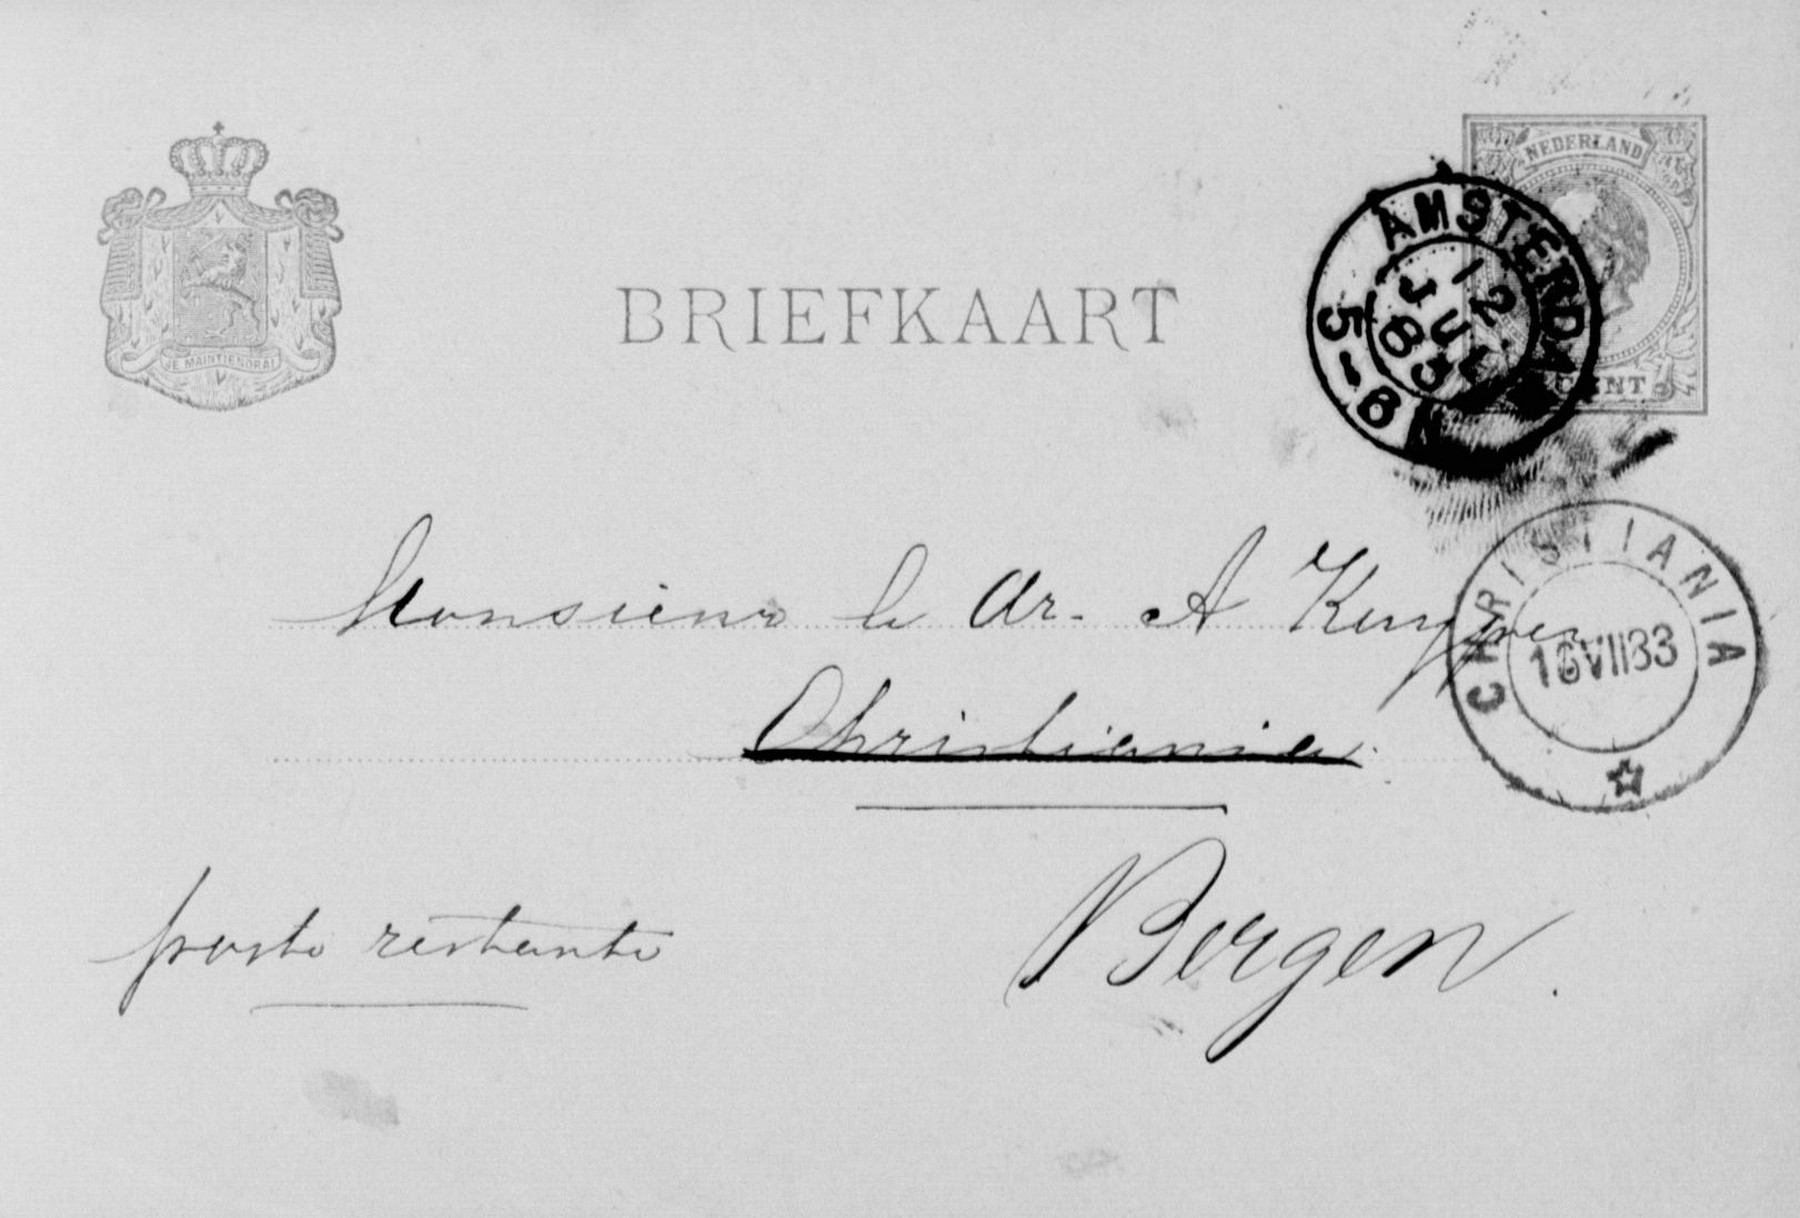 NEDERLAND
AMSTERDAM
12
JUL
83
5-8 N
BRIEFKAART
JE MAINTIENDRAI
CENT
CHRISTIANIA
16 VII 83
Monsieur le Dr. A Kuyper
Christiania.
poste restante
Bergen.